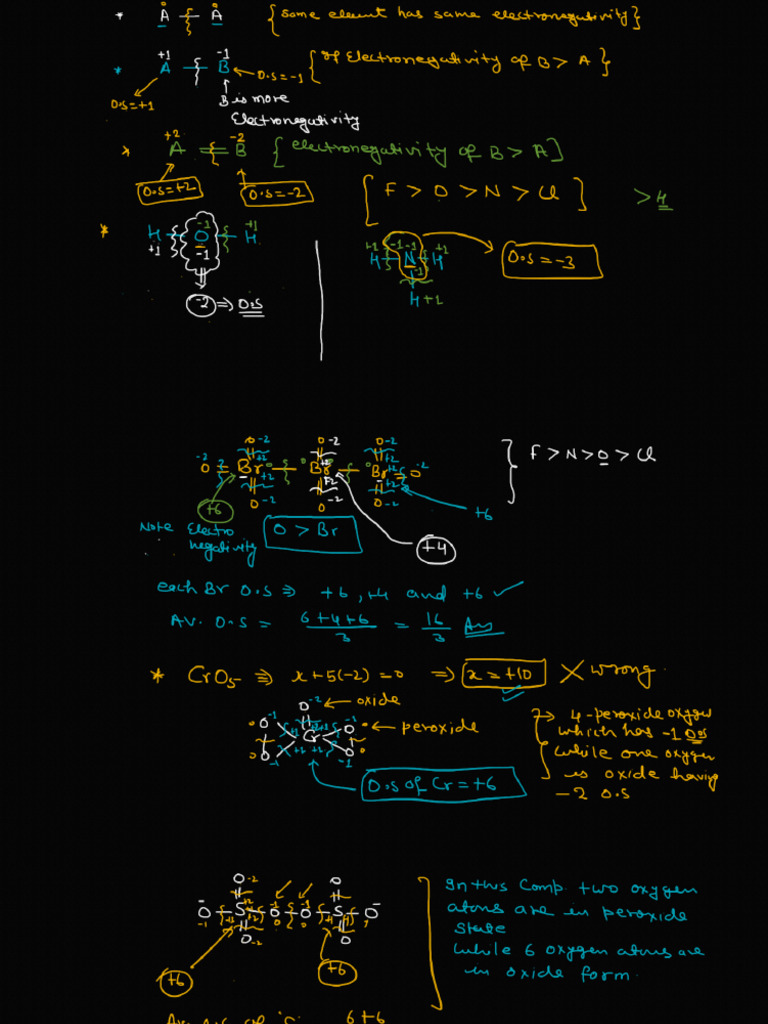 * A — A {Same element has same electronegativity}
+1 -1
* A — B ← O.S=-1 {If Electronegativity of B > A}
O.S=+1 B is more
Electronegativity
+2 -2
* A = B {electronegativity of B > A]
O.S=+2 O.S=-2 [F > O > N > Cl] > 4
* H — O — H +1 -1 +1
+1 -1
-2 ⇒ O.S
+1 -1 -1 +1
H N H O.S = -3
-1
H +1
O -2 O -2 O -2
-2 O = Br — Br — Br = O -2 } F > N > O > Cl
O -2 O -2 O -2
+6 +6
Note Electro
negativity O > Br
+4
each Br O.S ⇒ +6, +4 and +6 ✓
AV. O.S = 6+4+6/3 = 16/3 Ans
* CrO5 ⇒ x+5(-2)=0 ⇒ x=+10 × wrong
O -2 ← oxide
O -1 Cr O -1 ← peroxide
O -1 O -1
→ 4-peroxide oxygen
which has -1 O.S
while one oxygen
is oxide having
-2 O.S
O.S of Cr = +6
O -2 O
-O — S — O — O — S — O-
O -2 O
+6 +6
In this Comp. two oxygen
atoms are in peroxide
state
while 6 oxygen atoms are
in oxide form.
6+6